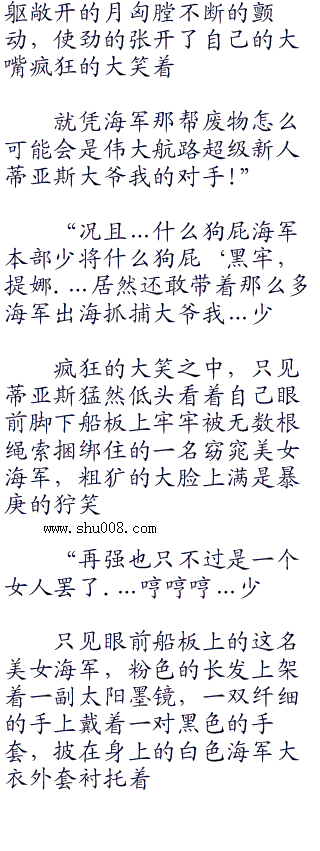 躯敞开的月匈膛不断的颤
动，使劲的张开了自己的大
嘴疯狂的大笑着
就凭海军那帮废物怎么
可能会是伟大航路超级新人
蒂亚斯大爷我的对手!”
“况且...什么狗屁海军
本部少将什么狗屁‘黑牢，
提娜....居然还敢带着那么多
海军出海抓捕大爷我...少
疯狂的大笑之中，只见
蒂亚斯猛然低头看着自己眼
前脚下船板上牢牢被无数根
绳索捆绑住的一名窈窕美女
海军，粗犷的大脸上满是暴
庚的狞笑
www.shu008.com
“再强也只不过是一个
女人罢了....哼哼哼...少
只见眼前船板上的这名
美女海军，粉色的长发上架
着一副太阳墨镜，一双纤细
的手上戴着一对黑色的手
套，披在身上的白色海军大
衣外套衬托着